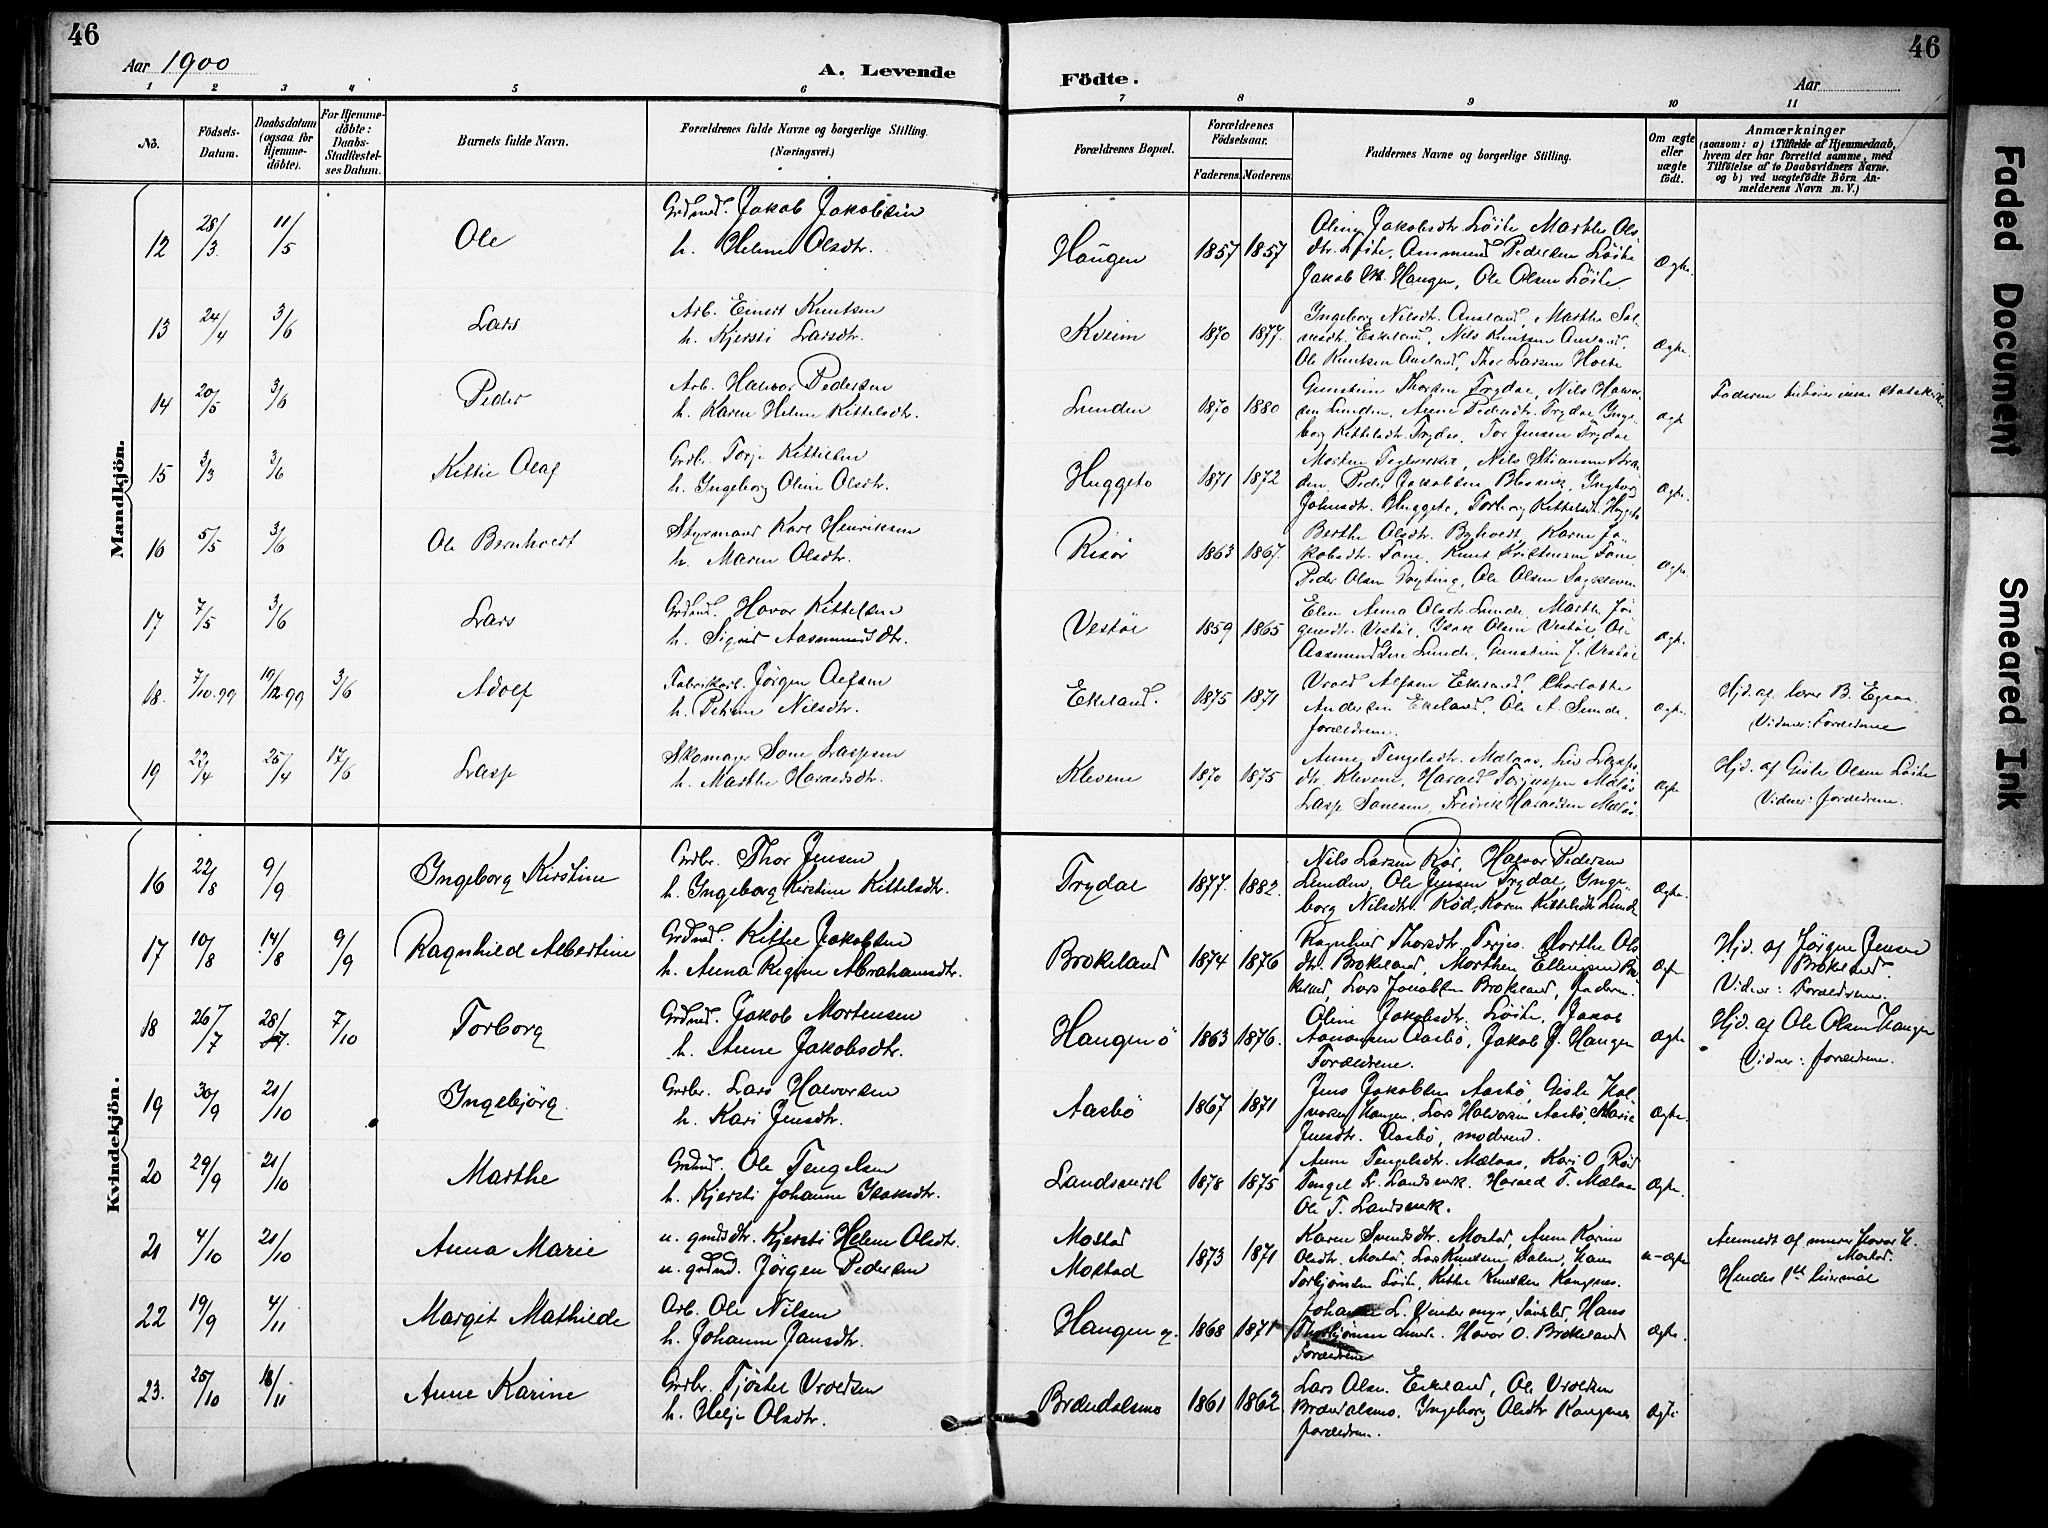 46
46
Aar 1900
A. Levende
Födte.
Aar
1 2 3 4 5 6 7 8 9 10 11
No.
Födsels-Datum.
Daabsdatum (ogsaa for Hjemmedöbte).
For Hjemmedöbte: Daabs-Stadfæstelses Datum.
Barnets fulde Navn.
Forældrenes fulde Navne og borgerlige Stilling. (Næringsvei.)
Forældrenes Bopæl.
Forældrenes Födselsaar.
Faderens. Moderens.
Faddernes Navne og borgerlige Stilling.
Om ægte eller uægte födt.
Anmærkninger
(saasom: a) i Tilfælde af Hjemmedaab, hvem der har forrettet samme, med Tilföielse af to Daabsvidners Navne. og b) ved uægtefödte Börn Anmelderens Navn m. V.)
Mandkjön.
12 28/3 11/5 Ole
Grdmd. Jakob Jakobsen
h. Helene Olsdtr.
Haugen 1857 1857
Oline Jakobsdtr. Löite, Marthe Ols
dtr. Löite, Ommund Pedersen Löite
Haugen, Ole Olsen Löite.
Ægte.
13 24/4 3/6 Lars
Arb. Einert Knutsen
h. Kjersti Larsdtr.
Kveim 1870 1877.
Ingeborg Nilsdtr. Ausland, Marthe
Ekeland, Nils Knutsen Ausland,
Ole Knutsen Ausland, Thor Larsen
Ægte.
14 20/5 3/6 Peder
Arb. Halvor Pedersen
h. Karen Helene Kittelsdtr.
Lunden 1870 1880
Gunstein Thorsen Trydal, Nils Halvor-
sen Lunden, Anne Pedersdtr. Trydal, Inge-
borg Kittelsdtr. Trydal, Tor Jensen Trydal
Ægte
Faderen
15 3/3 3/6 Kittil Olaf
Grdbr. Torje Kittilsen
h. Ingeborg Oline Olsdtr.
Huggeto 1871 1872
Peder Jakobsen Ingeborg
Huggeto, Torborg Kittelsdt. Huggeto
Ægte.
16 5/5 3/6 Ole Bernhard
Styrmand Karl Henriksen
h. Maren Olsdtr.
Risör 1863 1867.
Berthe Olsdtr. Karen Ja-
kobsdtr. Knut Kristensen
Peder Olsen Ole Olsen
Ægte.
17 7/5 3/6 Lars
Grdmd. Havor Kittelsen
h. Sigrid Aasmundsdtr.
Vestöl 1859 1865
Elen Anna Olsdtr. Lunde, Marthe Jör
gensdtr. Vestöl, Isak Olsen Vestöl, Ole
Aasmundsen Lunde, Gunstein J. Vestöl
Ægte.
18. 7/10.99 10/12.99 3/6 Adolf
Fabrikarb. Jörgen Alfsen
h. Petrine Nilsdtr.
Ekeland. 1875 1871
Vrold Alfsen Ekeland, Charlotte
Andersen Ekeland, Ole A. Lunde,
forældrene.
Ægte.
Hjd. af lærer B. Egsaa
Vidner: Forældrene
19 22/4 25/4 17/6 Lasse
Skomager Sone Lassesen
h. Marthe Haraldsdtr.
Klevene 1870 1875
Anne Tengelsdtr. Mælaas, Liv Lasses
dtr. Klevene, Harald Mælaas
Lasse Sonesen, Fredrik Haraldsen Mælaas.
Ægte
Hjd. af Gisle Olsen Löite
Vidner: forældrene.
Kvindekjön.
16 22/8 9/9 Ingeborg Kirstine
Grdbr. Thor Jensen
h. Ingeborg Kirstine Kittelsdtr.
Trydal 1877. 1882.
Nils Larsen Röd, Halvor Pedersen
Lunden, Ole Jensen Trydal, Inge-
borg Nilsdtr. Röd, Karen Kittelsdtr. Lunde
Ægte.
17 10/8 14/8 9/9 Ragnhild Albertine
Grdmd. Kittel Jakobsen
h. Anna Regine Abrahamsdtr.
Brokeland 1874 1876
Ragnhild Thorsdtr. Terjes. Marthe Ols
dtr. Brokeland, Morthen Ellingsen Bro
keland, Lars Jakobsen Brokeland, faderen.
Ægte
Hjd. af Jörgen Jensen
Brokeland.
Vidner: Forældrene.
18 26/7 28/7. 7/10 Torborg
Grdmd. Jakob Mortensen
h. Anne Jakobsdtr.
Haugen ö 1863 1876.
Oline Jakobsdtr. Löite, Jakob
Aanonsen Aasbö, Jakob J. Haugen
Forældrene.
Ægte
Hjd. af Ole Olsen Haugen
Vidner: forældrene.
19 30/9 21/10 Ingebjörg
Grdbr. Lars Halvorsen
h. Kari Jensdtr.
Aasbö 1867 1871
Jens Jakobsen Aasbö, Gisle Hal
vorsen Haugen, Lars Halvorsen Aasbö, Marie
Jensdtr. Aasbö, moderen.
Ægte.
20 29/9 21/10 Marthe
Grdmd. Ole Tengelsen
h. Kjersti Johanne Isaksdtr.
Landsverk 1878 1875
Anne Tengelsdtr. Mælaas, Kari O. Röd
Tengel Landsverk. Harald T. Mælaas
Ole T. Landsverk.
Ægte.
21 4/10 21/10 Anna Marie
u. gmdsdtr. Kjersti Helene Olsdtr.
u. grdmd. Jörgen Pedersen
Mostad
Mostad
1873 1871
Karen Svendsdtr. Mostad, Anne Karine
Olsdtr. Mostad, Lars Knudsen Dalen, Hans
Torbjörnsen Löite, Kittel Knutsen Kangsnes.
u-ægte
Anmeldt af Havor
Mostad.
Hendes 1ste leiermål
22 19/9 4/11 Margit Mathilde
Arb. Ole Nilsen
h. Johanne Jansdtr.
Haugen 1868 1871
L. Vintermyr, Söndeled, Hans
Thorbjörnsen Havor O. Brokeland
Forældrene
Ægte.
23. 25/10 18/11 Anne Karine
Grdbr. Tjöstel Vroldsen
h. Helje Olsdtr.
Brændalsmo 1861 1862
Lars Olsen Eikeland, Ole Vroldsen
Brændalsmo. Ingeborg Olsdtr Kangsnes
forældrene.
Ægte
Faded Document
Smeared Ink